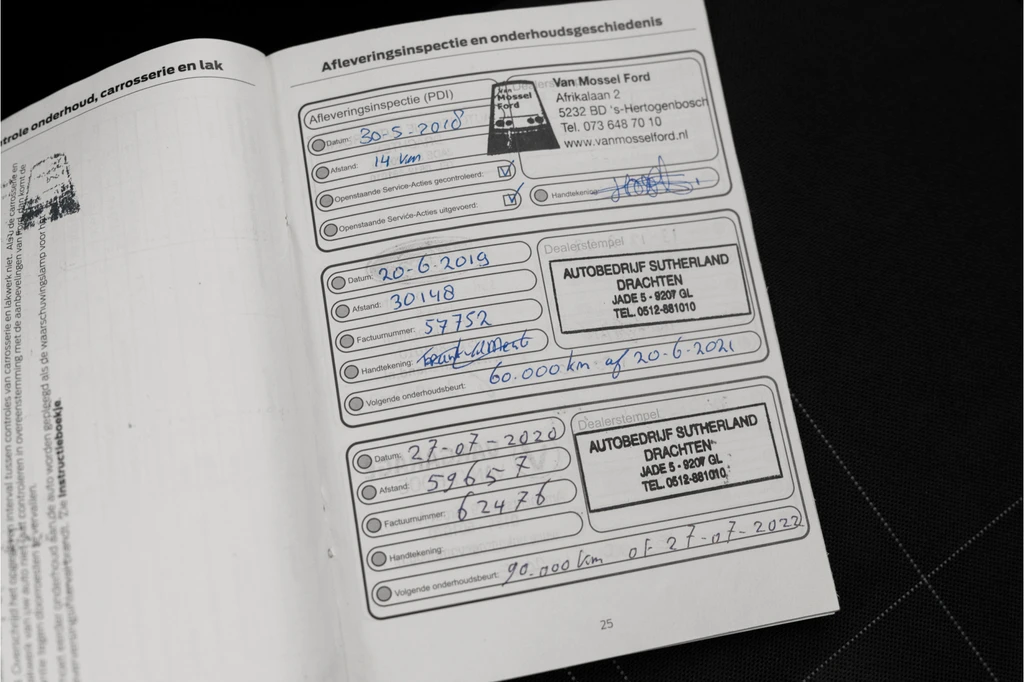 ntrole onderhoud, carrosserie en lak
interval tussen controles van carrosserie en lakwerk niet. Als u de carrosserie en
controleren in overeenstemming met de aanbevelingen van Ford, dan komt de
vervallen.
eerder onderhoud aan de auto worden gepleegd als de waarschuwingslamp voor
Zie Instructieboekje.
Afleveringsinspectie en onderhoudsgeschiedenis
Afleveringsinspectie (PDI)
Datum: 30-5-2018
Afstand: 14 km
Openstaande Service-Acties gecontroleerd:
Openstaande Service-Acties uitgevoerd:
Van Mossel Ford
Van Mossel Ford
Afrikalaan 2
5232 BD 's-Hertogenbosch
Tel. 073 648 70 10
www.vanmosselford.nl
Handtekening
Datum: 20-6-2019
Afstand: 30148
Factuurnummer: 57752
Handtekening:
Volgende onderhoudsbeurt: 60.000 km of 20-6-2021
Dealerstempel
AUTOBEDRIJF SUTHERLAND
DRACHTEN
JADE 5 - 9207 GL
TEL. 0512-881010
Datum: 27-07-2020
Afstand: 59657
Factuurnummer: 62476
Handtekening:
Volgende onderhoudsbeurt: 90.000 km of 27-07-2022
Dealerstempel
AUTOBEDRIJF SUTHERLAND
DRACHTEN
JADE 5 - 9207 GL
TEL. 0512-881010
25